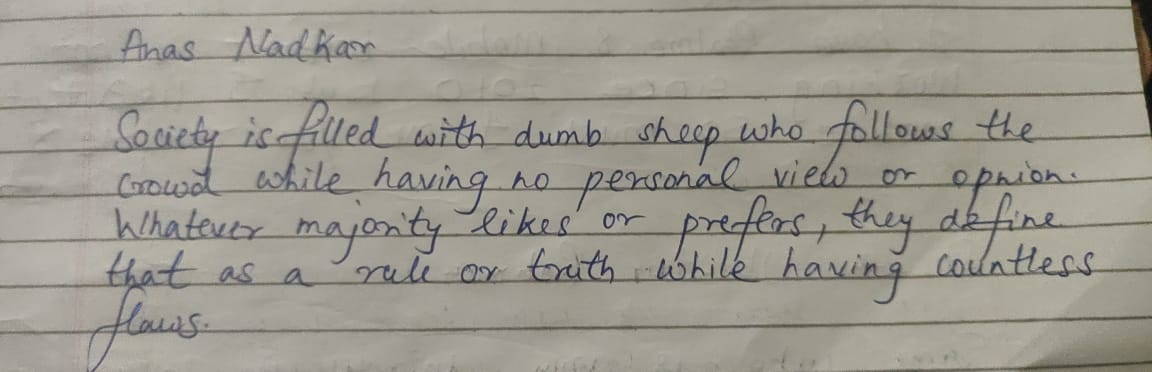 Anas Nadkar
Society is filled with dumb sheep who follows the
crowd while having no personal view or opnion.
Whatever majority likes or prefers, they define
that as a rule or truth while having countless
flaws.